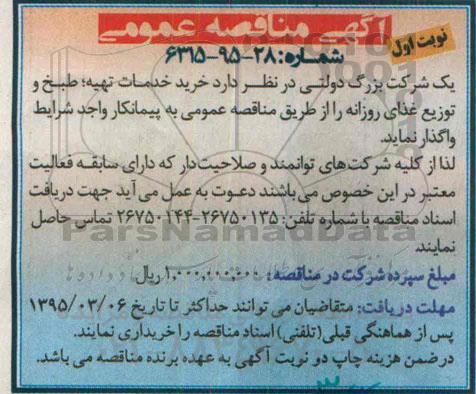 آگهی مناقصه عمومی
نوبت اول
شماره: ۲۸-۹۵-۶۳۱۵
یک شرکت بزرگ دولتی در نظر دارد خرید خدمات تهیه؛ طبخ و
توزیع غذای روزانه را از طریق مناقصه عمومی به پیمانکار واجد شرایط
واگذار نماید.
لذا از کلیه شرکت‌های توانمند و صلاحیت‌دار که دارای سابقه فعالیت
معتبر در این خصوص می‌باشند دعوت به عمل می‌آید جهت دریافت
اسناد مناقصه با شماره تلفن: ۲۶۷۵۰۱۳۵-۲۶۷۵۰۱۴۴ تماس حاصل
نمایند.
ParsNamadData
مبلغ سپرده شرکت در مناقصه: ریال
مهلت دریافت: متقاضیان می توانند حداکثر تا تاریخ ۱۳۹۵/۰۳/۰۶
پس از هماهنگی قبلی(تلفنی) اسناد مناقصه را خریداری نمایند.
در ضمن هزینه چاپ دو نوبت آگهی به عهده برنده مناقصه می باشد.